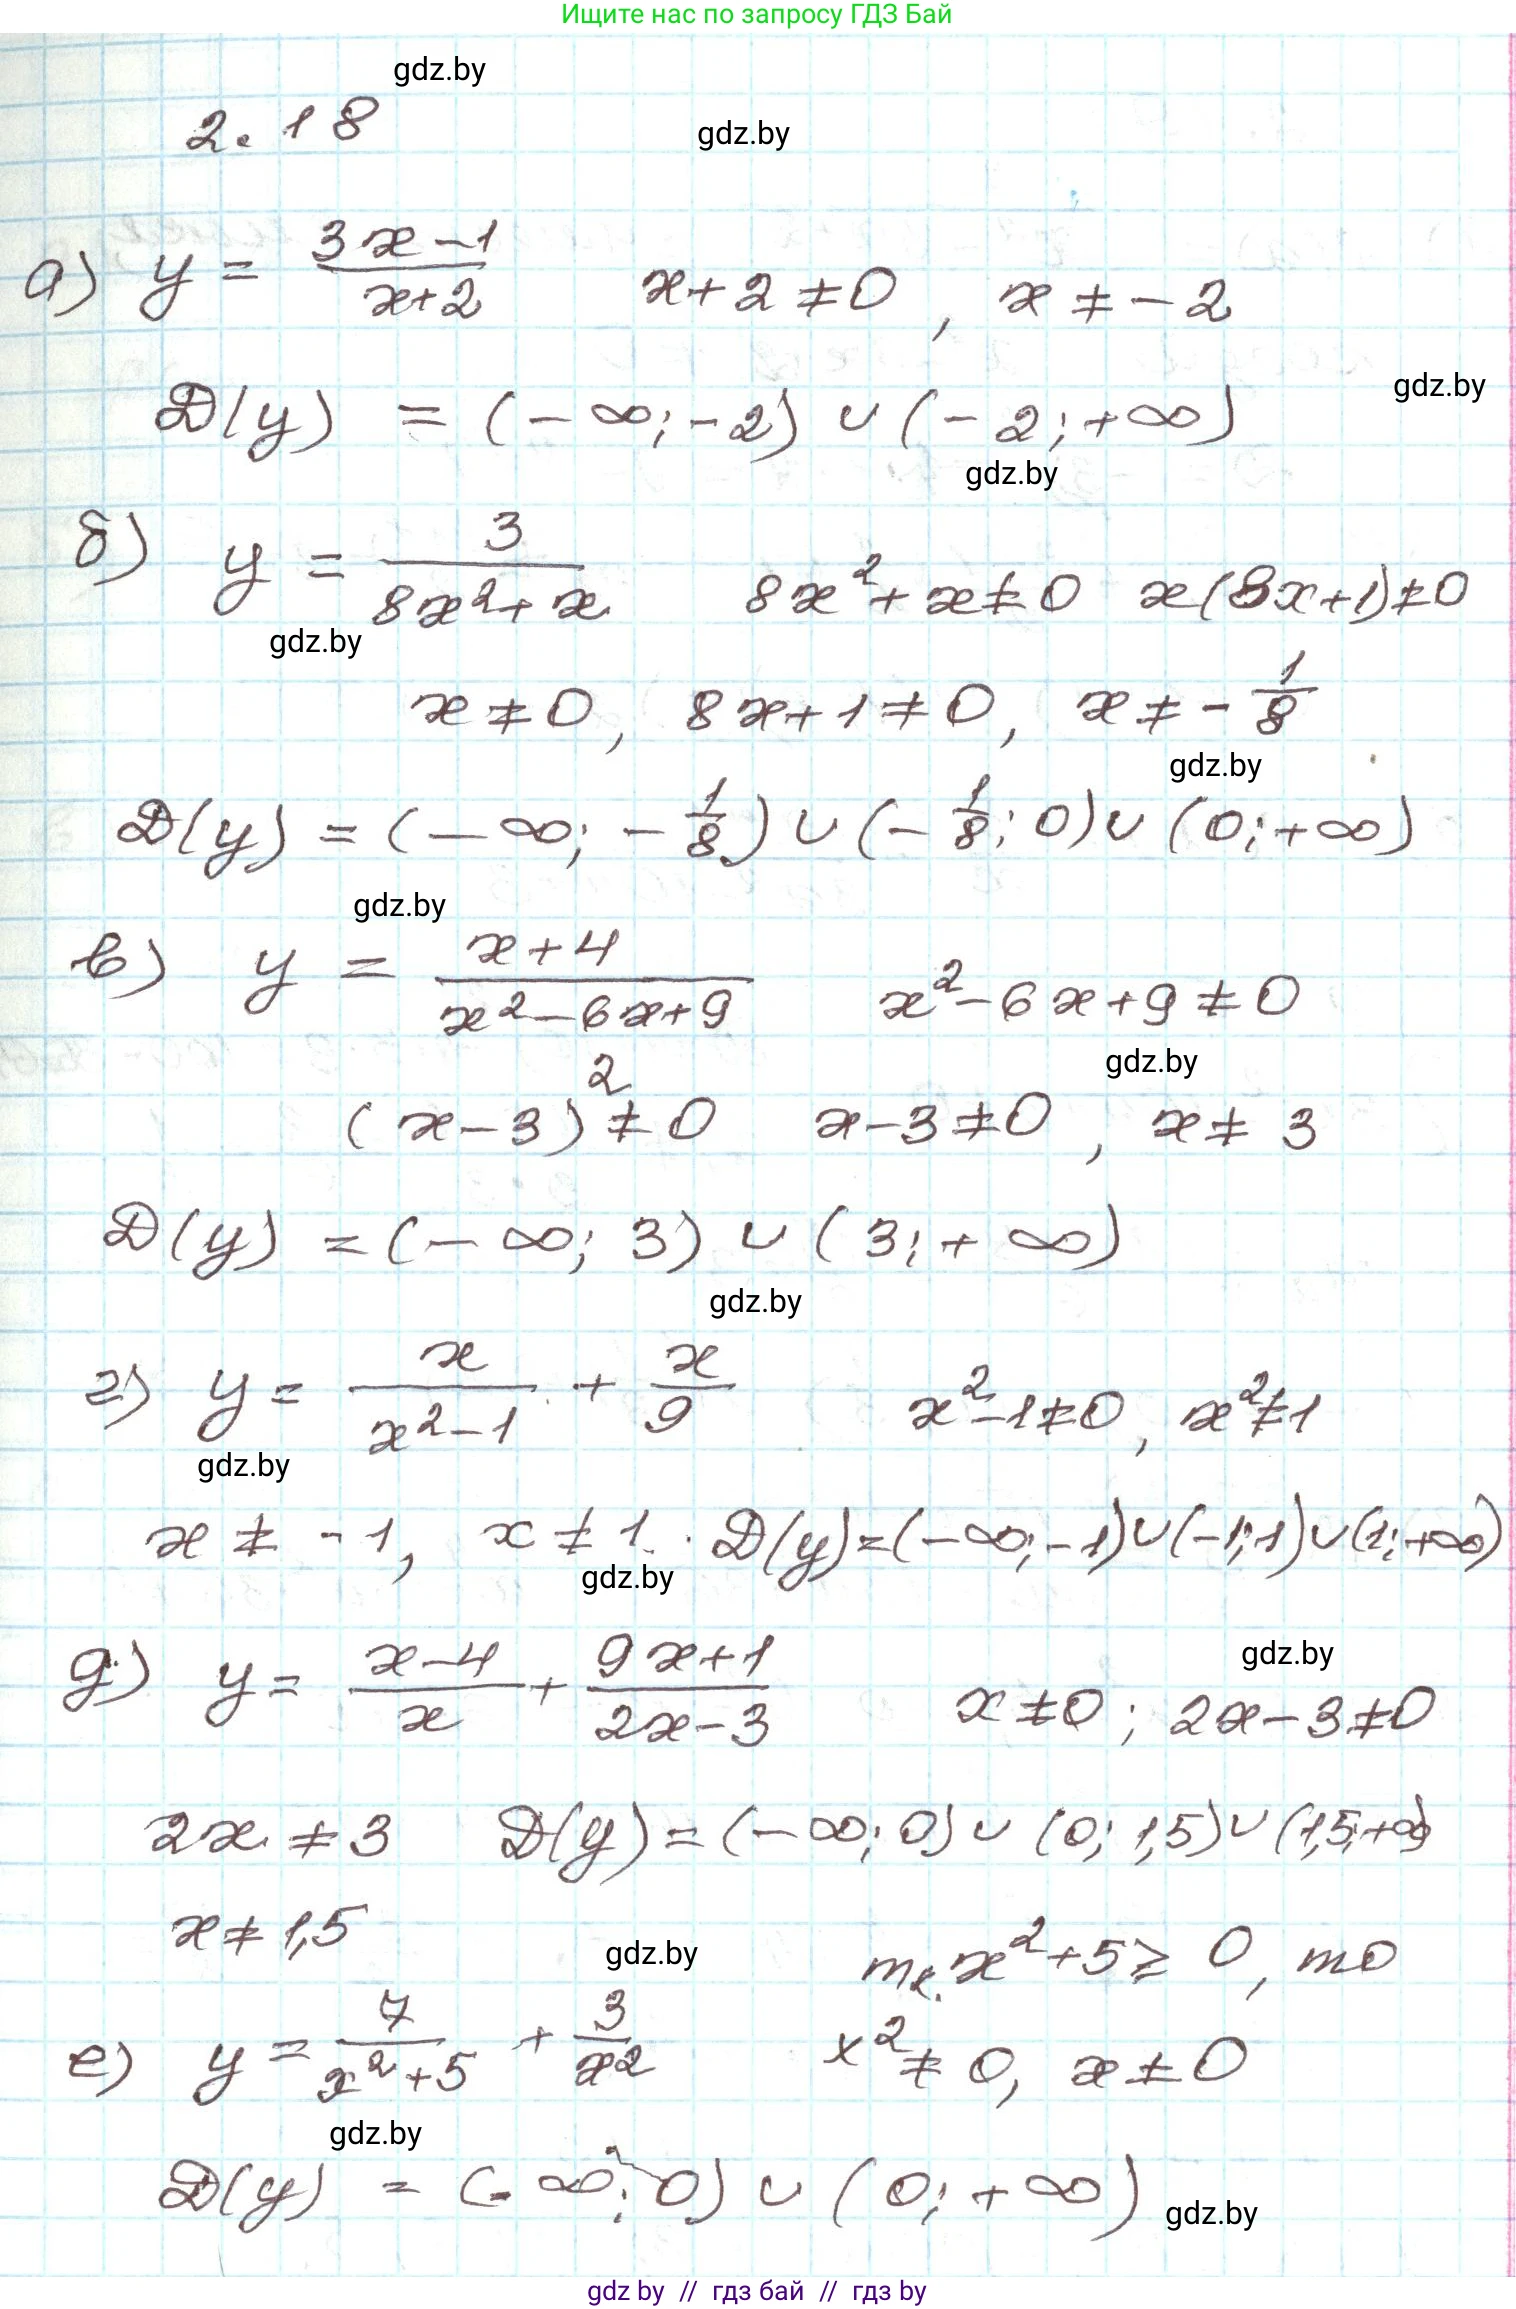 Ищите нас по запросу ГДЗ Бай
gdz.by
2.18
gdz.by
а) y = (3x-1)/(x+2)   x+2≠0, x≠-2
gdz.by
D(y) = (-∞;-2) ∪ (-2;+∞)
gdz.by
б) y = 3/(8x²+x)   8x²+x≠0   x(8x+1)≠0
gdz.by
x≠0, 8x+1≠0, x≠-1/8
gdz.by
D(y) = (-∞; -1/8) ∪ (-1/8; 0) ∪ (0;+∞)
gdz.by
в) y = (x+4)/(x²-6x+9)   x²-6x+9≠0
gdz.by
(x-3)²≠0   x-3≠0, x≠3
D(y) = (-∞; 3) ∪ (3;+∞)
gdz.by
г) y = x/(x²-1) + x/9   x²-1≠0, x²≠1
gdz.by
x≠-1, x≠1. D(y)=(-∞;-1)∪(-1;1)∪(1;+∞)
gdz.by
д) y = (x-4)/x + (9x+1)/(2x-3)   x≠0; 2x-3≠0
gdz.by
2x≠3   D(y)=(-∞;0)∪(0;1,5)∪(1,5;+∞)
x≠1,5
gdz.by
т.к. x²+5⩾0, то
е) y = 7/(x²+5) + 3/x²   x²≠0, x≠0
gdz.by
D(y) = (-∞;0) ∪ (0;+∞)
gdz.by
gdz by // гдз бай // гдз by